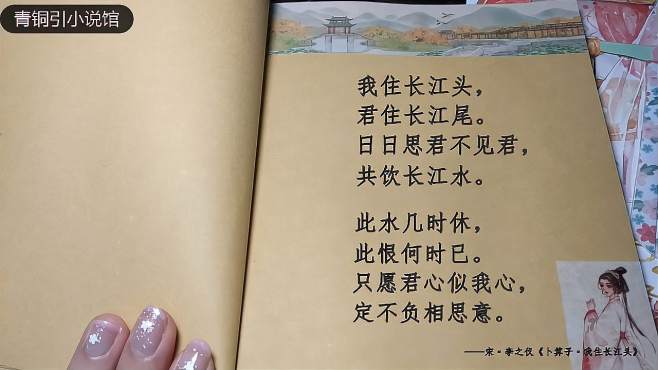 青铜引小说馆
我住长江头，
君住长江尾。
日日思君不见君，
共饮长江水。
此水几时休，
此恨何时已。
只愿君心似我心，
定不负相思意。
——宋·李之仪《卜算子·我住长江头》